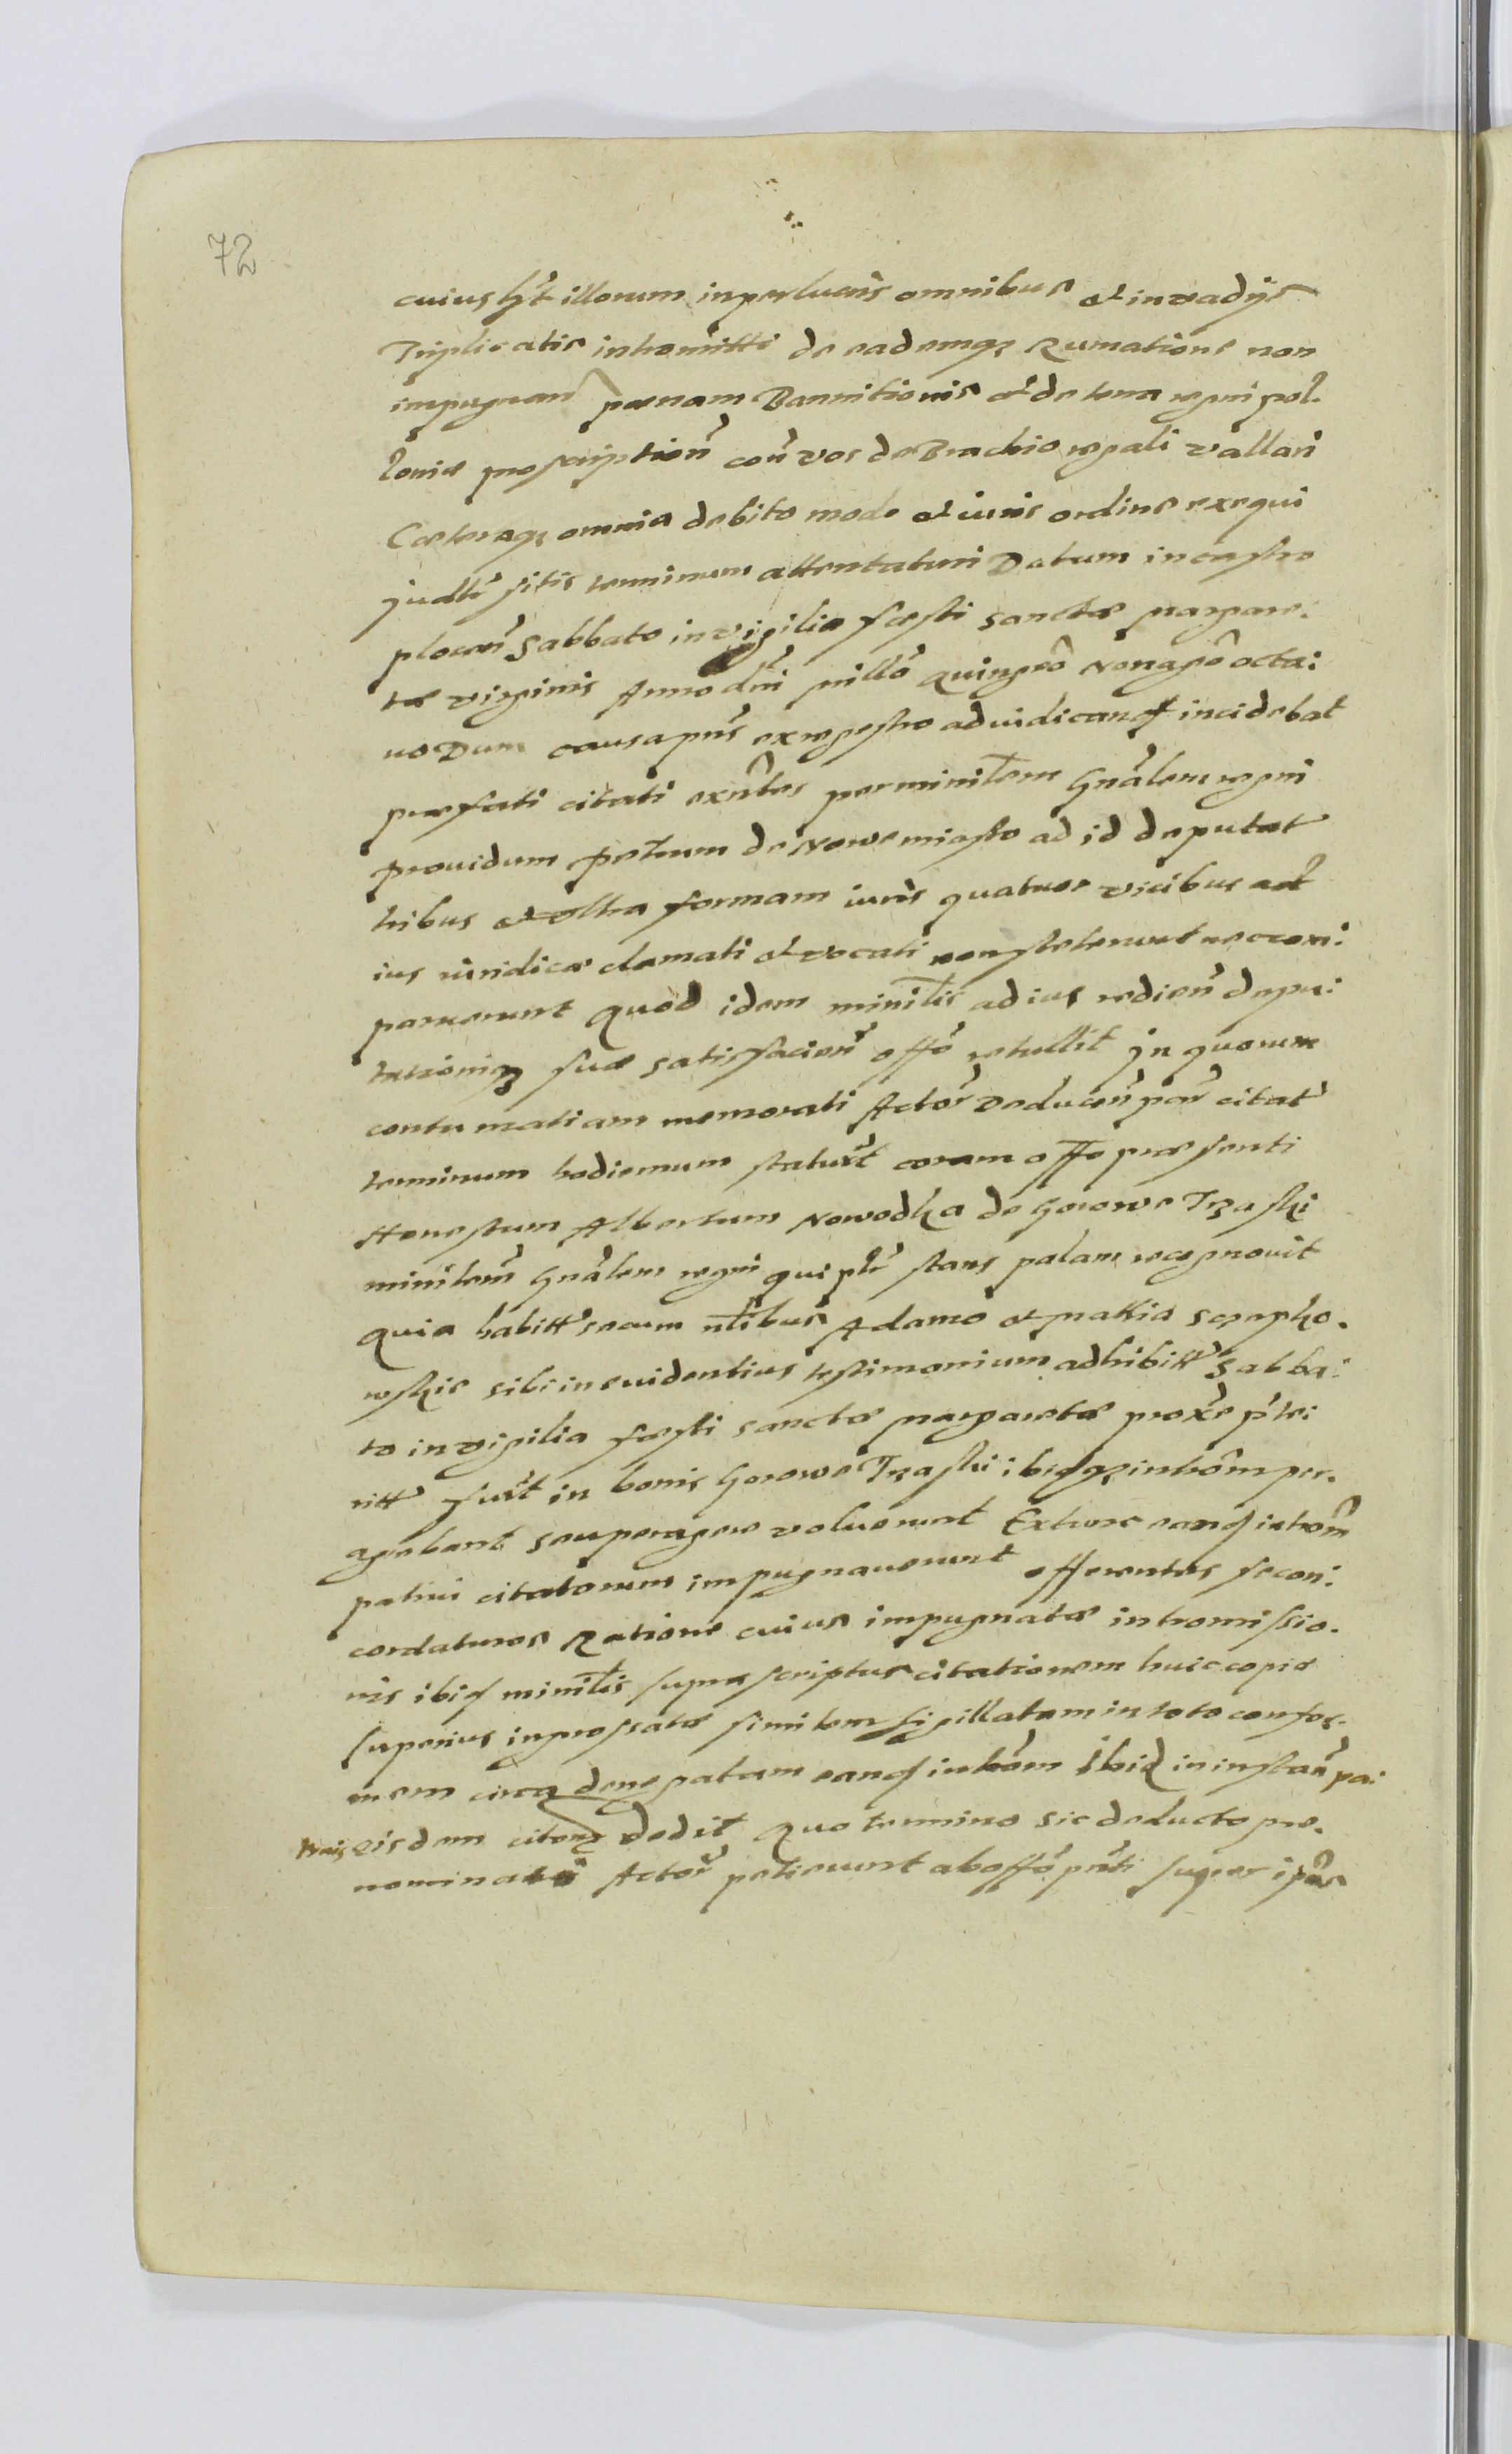 72
cuiuslꝫt illorum in perlucris omnibus et in vadÿs
Triplicatis intromitti de eademqꝫ Rumatione non
impugnan̄ pænam Bannitionis et de terra regni pol:
loniæ proscription̄ con̄ vos de Brachio regali vallari
Cæteraqꝫ omnia debito modo et iuris ordine exequi
judlr̄ sitis terminum attentaturi Datum in castro
plocen̄ Sabbato in vigilia festi Sanctæ margare:
tæ virginis Anno dn̄i mill̄o quingēo Nonagēo octa:
uo Dum causa pn̄s ex regestro ad iudicand̄ incidebat
præfati citati exn̄tes per minilem Gnālem regni
prouidum Petrum de Nowemiasto ad id deputat̄
tribus et vltra formam iuris quatuor vicibus ad
ius iuridicæ clamati et vocati non steterunt nec com:
paruerunt Quod idem minilis ad ius redien̄ depu:
tationiqꝫ suæ satisfacien̄ off̄o retullit Jn quorum
contumatiam memorati Actor̄ Deducen̄ par̄ citat̄
terminum hodiernum statuer̄t coram offo præsenti
Honestum Albertum Nowodka de Gorowo Trzaski
minilem̄ Gnālem regni qui plr̄ stans palam recognouit
Quia habitt̄ secum nlibus Adamo et Mattia Scepko:
wskie sibi in euidentius testimonium adhibitt̄ Sabba:
to in vigilia festi sanctæ Margaretæ prox̄e p̄te:
ritt̄ fuit̄ in bonis Gorowo Trzaski ibidqꝫ introm̄ per:
agebant seu peragere voluerunt Extunc eand̄ introm̄
patrui citatorum impugnauerunt offerentes se con:
cordaturos Ratione cuius impugnatæ intromissio:
nis ibid̄ minilis supra scriptus citationem huic copiæ
superius ingrossatæ similem sigillatam in toto confor:
mem circa denegatam eand̄ introm̄ Ibid̄ in instan̄ pa:
truis eisdem citan̄ dedit Quo termino sic deducto præ:
nominati Actor̄ petierunt ab off̄o pn̄ti super ip̄os